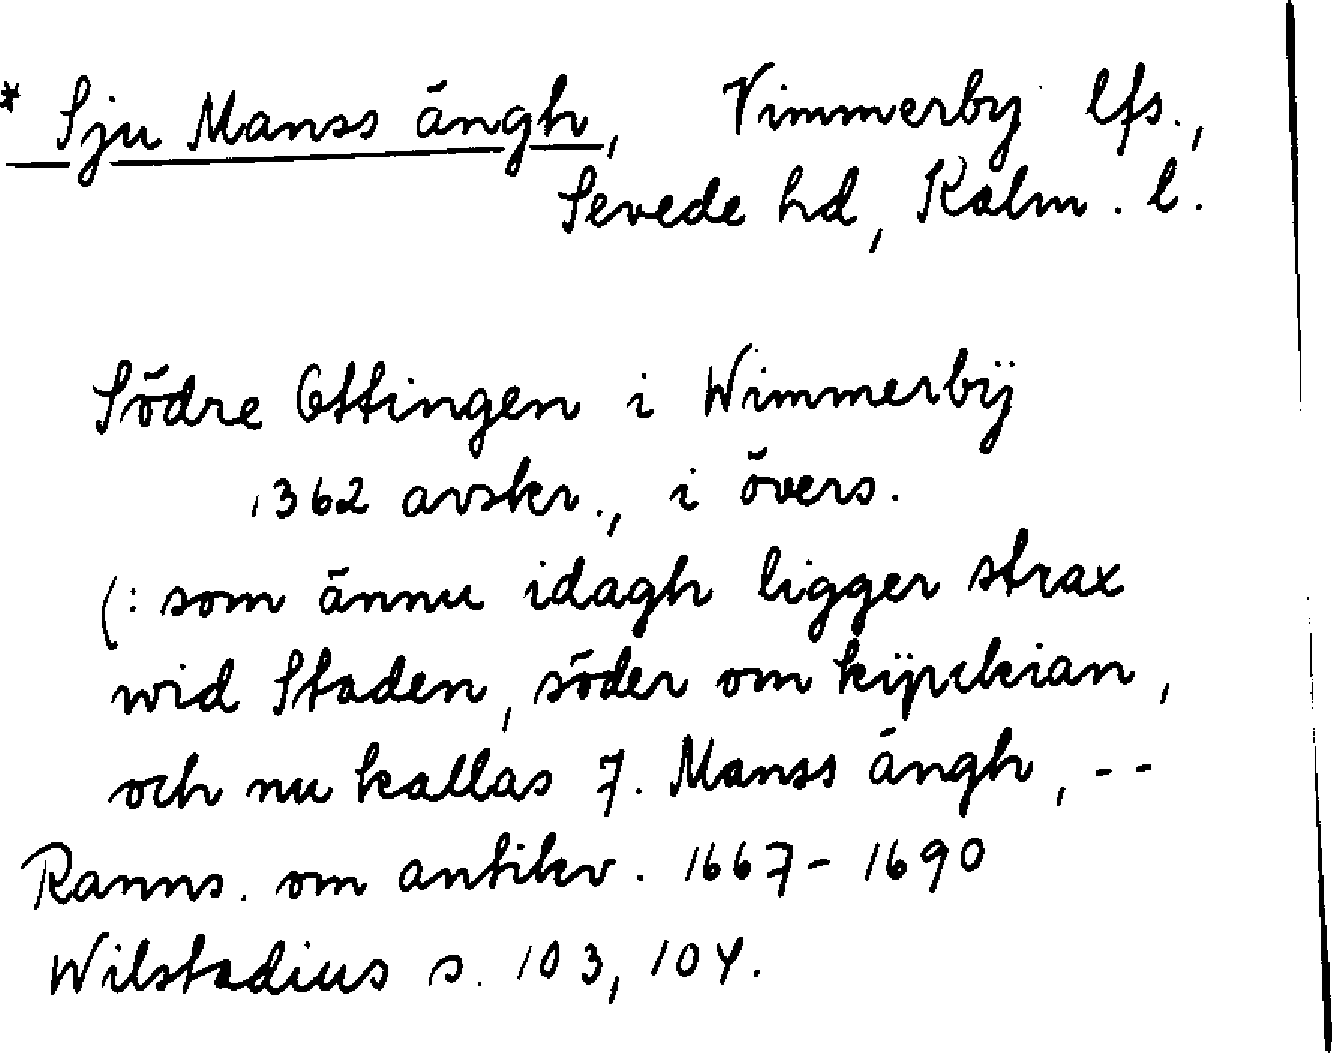 * Sju Manss ängh, Vimmerby lfs.,
Sevede hd, Kalm. l.
Södre Ottingen i Wimmerbÿ
1362 avskr., i övers.
(: som ännu idagh ligger strax
wid Staden, söder om kÿrckian,
och nu kallas 7. Manss ängh, --
Ranns. om antikv. 1667-1690
Wilstadius s. 103, 104.